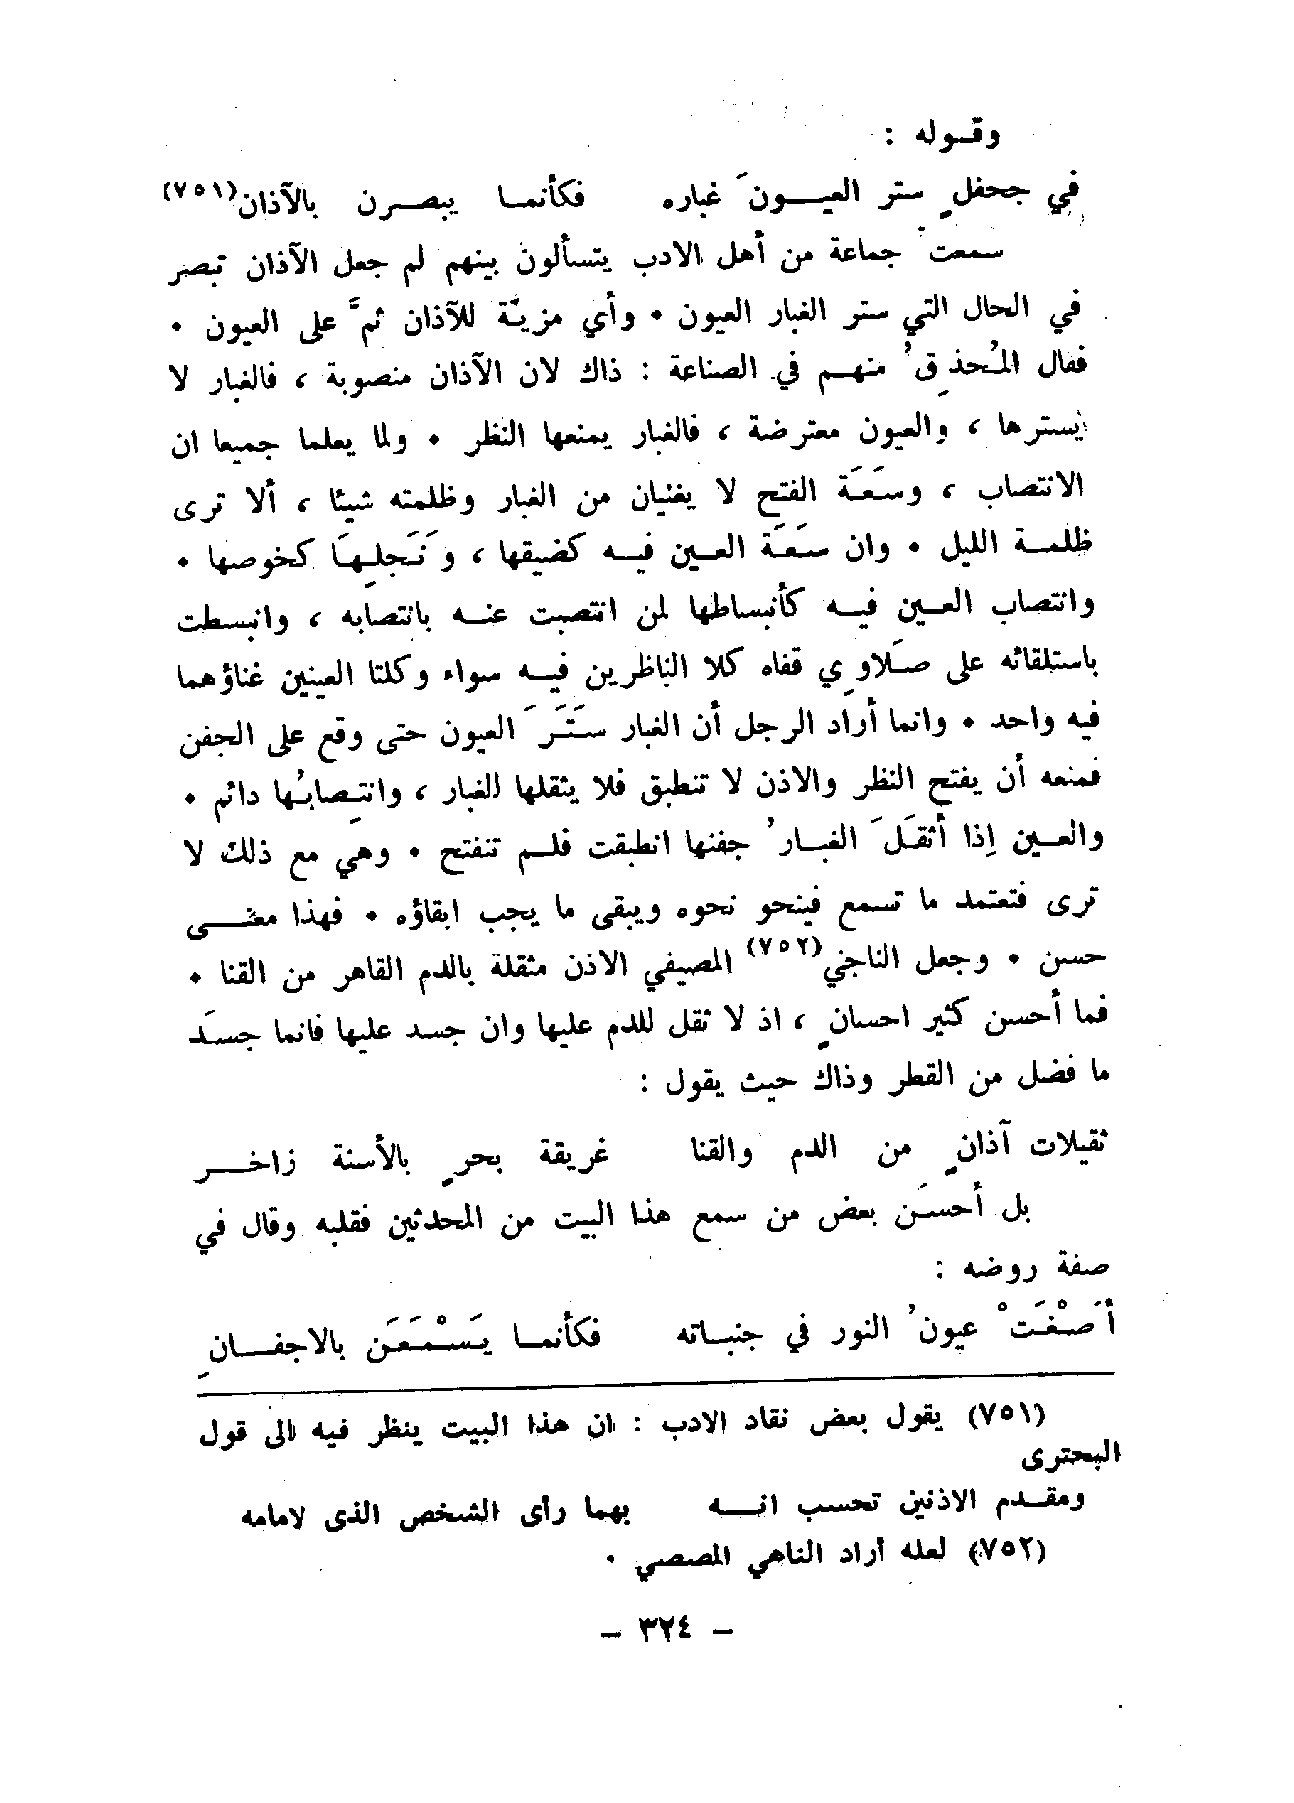 وقوله :
في جحفلٍ ستر العيونَ غباره فكأنما يبصرن بالآذان(٧٥١)
سمعتُ جماعة من أهل الادب يتسألون بينهم لم جعل الآذان تبصر
في الحال التي ستر الغبار العيون . وأي مزيّة للآذان ثمَّ على العيون .
فقال المُحذِقُ منهم في الصناعة : ذاك لان الآذان منصوبة ، فالغبار لا
يسترها ، والعيون معترضة ، فالغبار يمنعها النظر . ولما يعلما جميعا ان
الانتصاب ، وسَعَة الفتح لا يغنيان من الغبار وظلمته شيئا ، ألا ترى
ظلمة الليل . وان سَعَة العين فيه كضيقها ، ونَجلِهَا كخوصها .
وانتصاب العين فيه كأنبساطها لمن انتصبت عنه بانتصابه ، وانبسطت
باستلقائه على صَلاوِي قفاه كلا الناظرين فيه سواء وكلتا العينين غناؤهما
فيه واحد . وانما أراد الرجل أن الغبار سَتَرَ العيون حتى وقع على الجفن
فمنعه أن يفتح النظر والاذن لا تنطبق فلا يثقلها الغبار ، وانتِصابُها دائم .
والعين إِذا أثقَلَ الغبارُ جفنها انطبقت فلم تنفتح . وهي مع ذلك لا
ترى فتعتمد ما تسمع فينحو نحوه ويبقى ما يجب ابقاؤه . فهذا معنى
حسن . وجعل الناجي(٧٥٢) المصيفي الاذن مثقلة بالدم القاهر من القنا .
فما أحسن كثير احسانٍ ، اذ لا ثقل للدم عليها وان جسد عليها فانما جسَد
ما فضل من القطر وذاك حيث يقول :
ثقيلات آذانٍ من الدم والقنا غريقة بحرٍ بالأسنة زاخر
بل أحسَن بعض من سمع هذا البيت من المحدثين فقلبه وقال في
صفة روضه :
أَصْغَتْ عيونُ النور في جنباته فكأنما يَسْمَعَن بالاجفانِ
(٧٥١) يقول بعض نقاد الادب : ان هذا البيت ينظر فيه الى قول
البحترى
ومقدم الاذنين تحسب انه بهما رأى الشخص الذى لامامه
(٧٥٢) لعله أراد الناهي المصصي .
– ٣٢٤ –